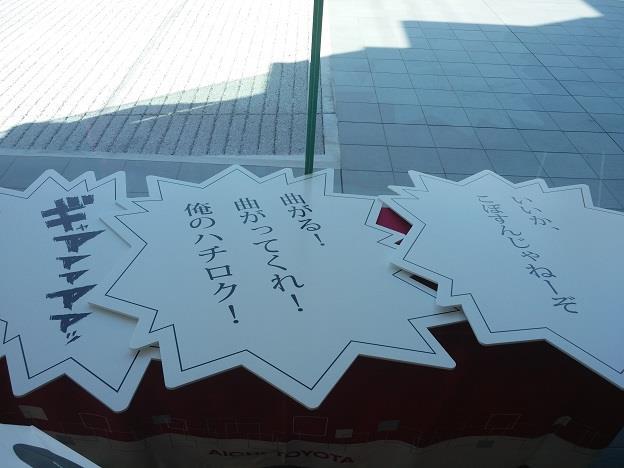 いいか、
こぼすんじゃねーぞ
曲がる！
曲がってくれ！
俺のハチロク！
ギャアアアアッ
AICHI TOYOTA